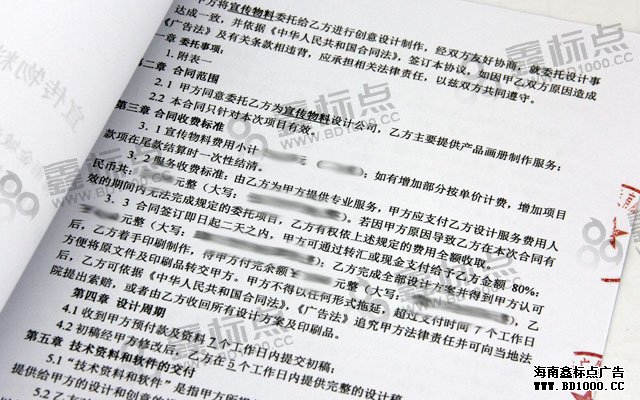 甲方将宣传物料委托给乙方进行创意设计制作，经双方友好协商，就委托设计事
达成一致，并依据《中华人民共和国合同法》，签订本协议，如因甲乙双方原因造成
《广告法》及有关条款相违背，应承担相关法律责任，以兹双方共同遵守。
一章 委托事项：
1. 附表一
第二章 合同范围
2.1 甲方同意委托乙方为宣传物料设计公司，乙方主要提供产品画册制作服务；
2.2 本合同只针对本次项目有效。
第三章 合同收费标准
3.1 宣传物料费用小计
；如有增加部分按单价计费，增加项目
款项在尾款结算时一次性结清。
3.2 服务收费标准：由乙方为甲方提供专业服务，甲方应支付乙方设计服务费用人
民币共：
元整（大写：
）。若因甲方原因导致乙方在本次合同有
效的期间内无法完成规定的委托项目，乙方有权依上述规定的费用全额收取。
3.3 合同签订即日起二天之内，甲方可通过转汇或现金支付给予乙方金额 80%：
元整（大写：
），乙方完成全部设计方案并得到甲方认可
后，乙方着手印刷制作，得甲方付完余额
元整（大写：
），乙
方便将原文件及印刷品转交甲方。甲方不得以任何形式拖延，超过支付时间 7 个工作日
后，乙方可依据《中华人民共和国合同法》，《广告法》追究甲方法律责任并可向当地法
院提出索赔，或者由乙方收回所有设计方案及印刷品。
第四章 设计周期
4.1 收到甲方预付款及资料2个工作日内提交初稿；
4.2 初稿经甲方修改后，乙方在5个工作日内提供完整的设计稿
第五章 技术资料和软件的交付
5.1 “技术资料和软件”是指甲方所
提供给甲方的设计和创意的
5.2 乙方
鑫标点
WWW.BD1000.CC
海南鑫标点广告
WWW.BD1000.CC